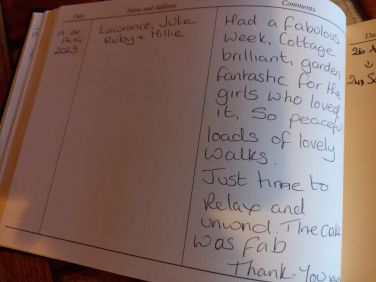 Date
Name and Address
Comments
Date
19-26
AUG
2023
Lawrance, Julie
Ruby + Millie
Had a fabolous
week, Cottage
brilliant, garden
fantastic for the
girls who loved
it. So peaceful
loads of lovely
walks.
Just time to
Relax and
unwind. The cake
was fab
Thank-You
26 A
2nd S